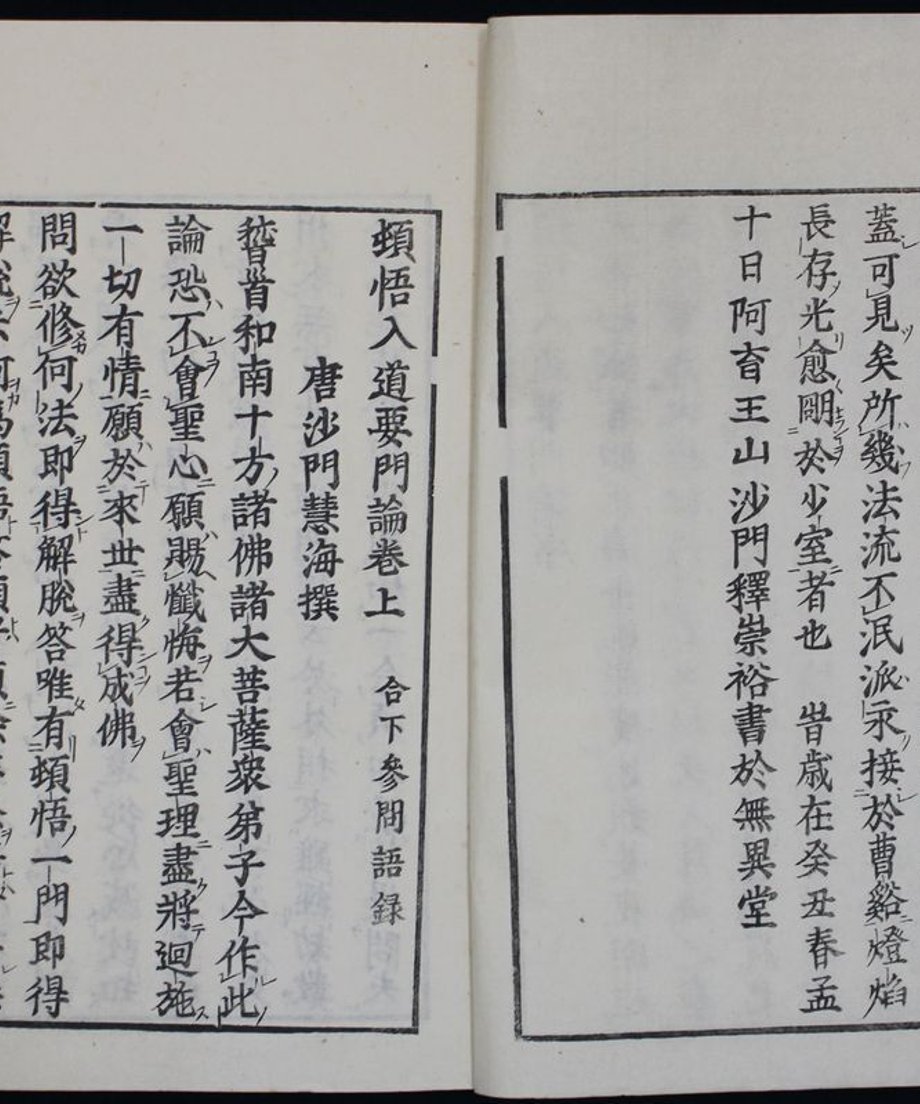 蓋可見矣所幾法流不泯派永接於曹谿燈焰
長存光愈剛於少室者也　旹歲在癸丑春孟
十日阿育王山沙門釋崇裕書於無異堂
頓悟入道要門論卷上　合下參問語録
唐沙門慧海撰
稽首和南十方諸佛諸大菩薩衆弟子今作此
論恐不會聖心願賜懺悔若會聖理盡將迴施
一切有情願於來世盡得成佛
問欲修何法即得解脫答唯有頓悟一門即得